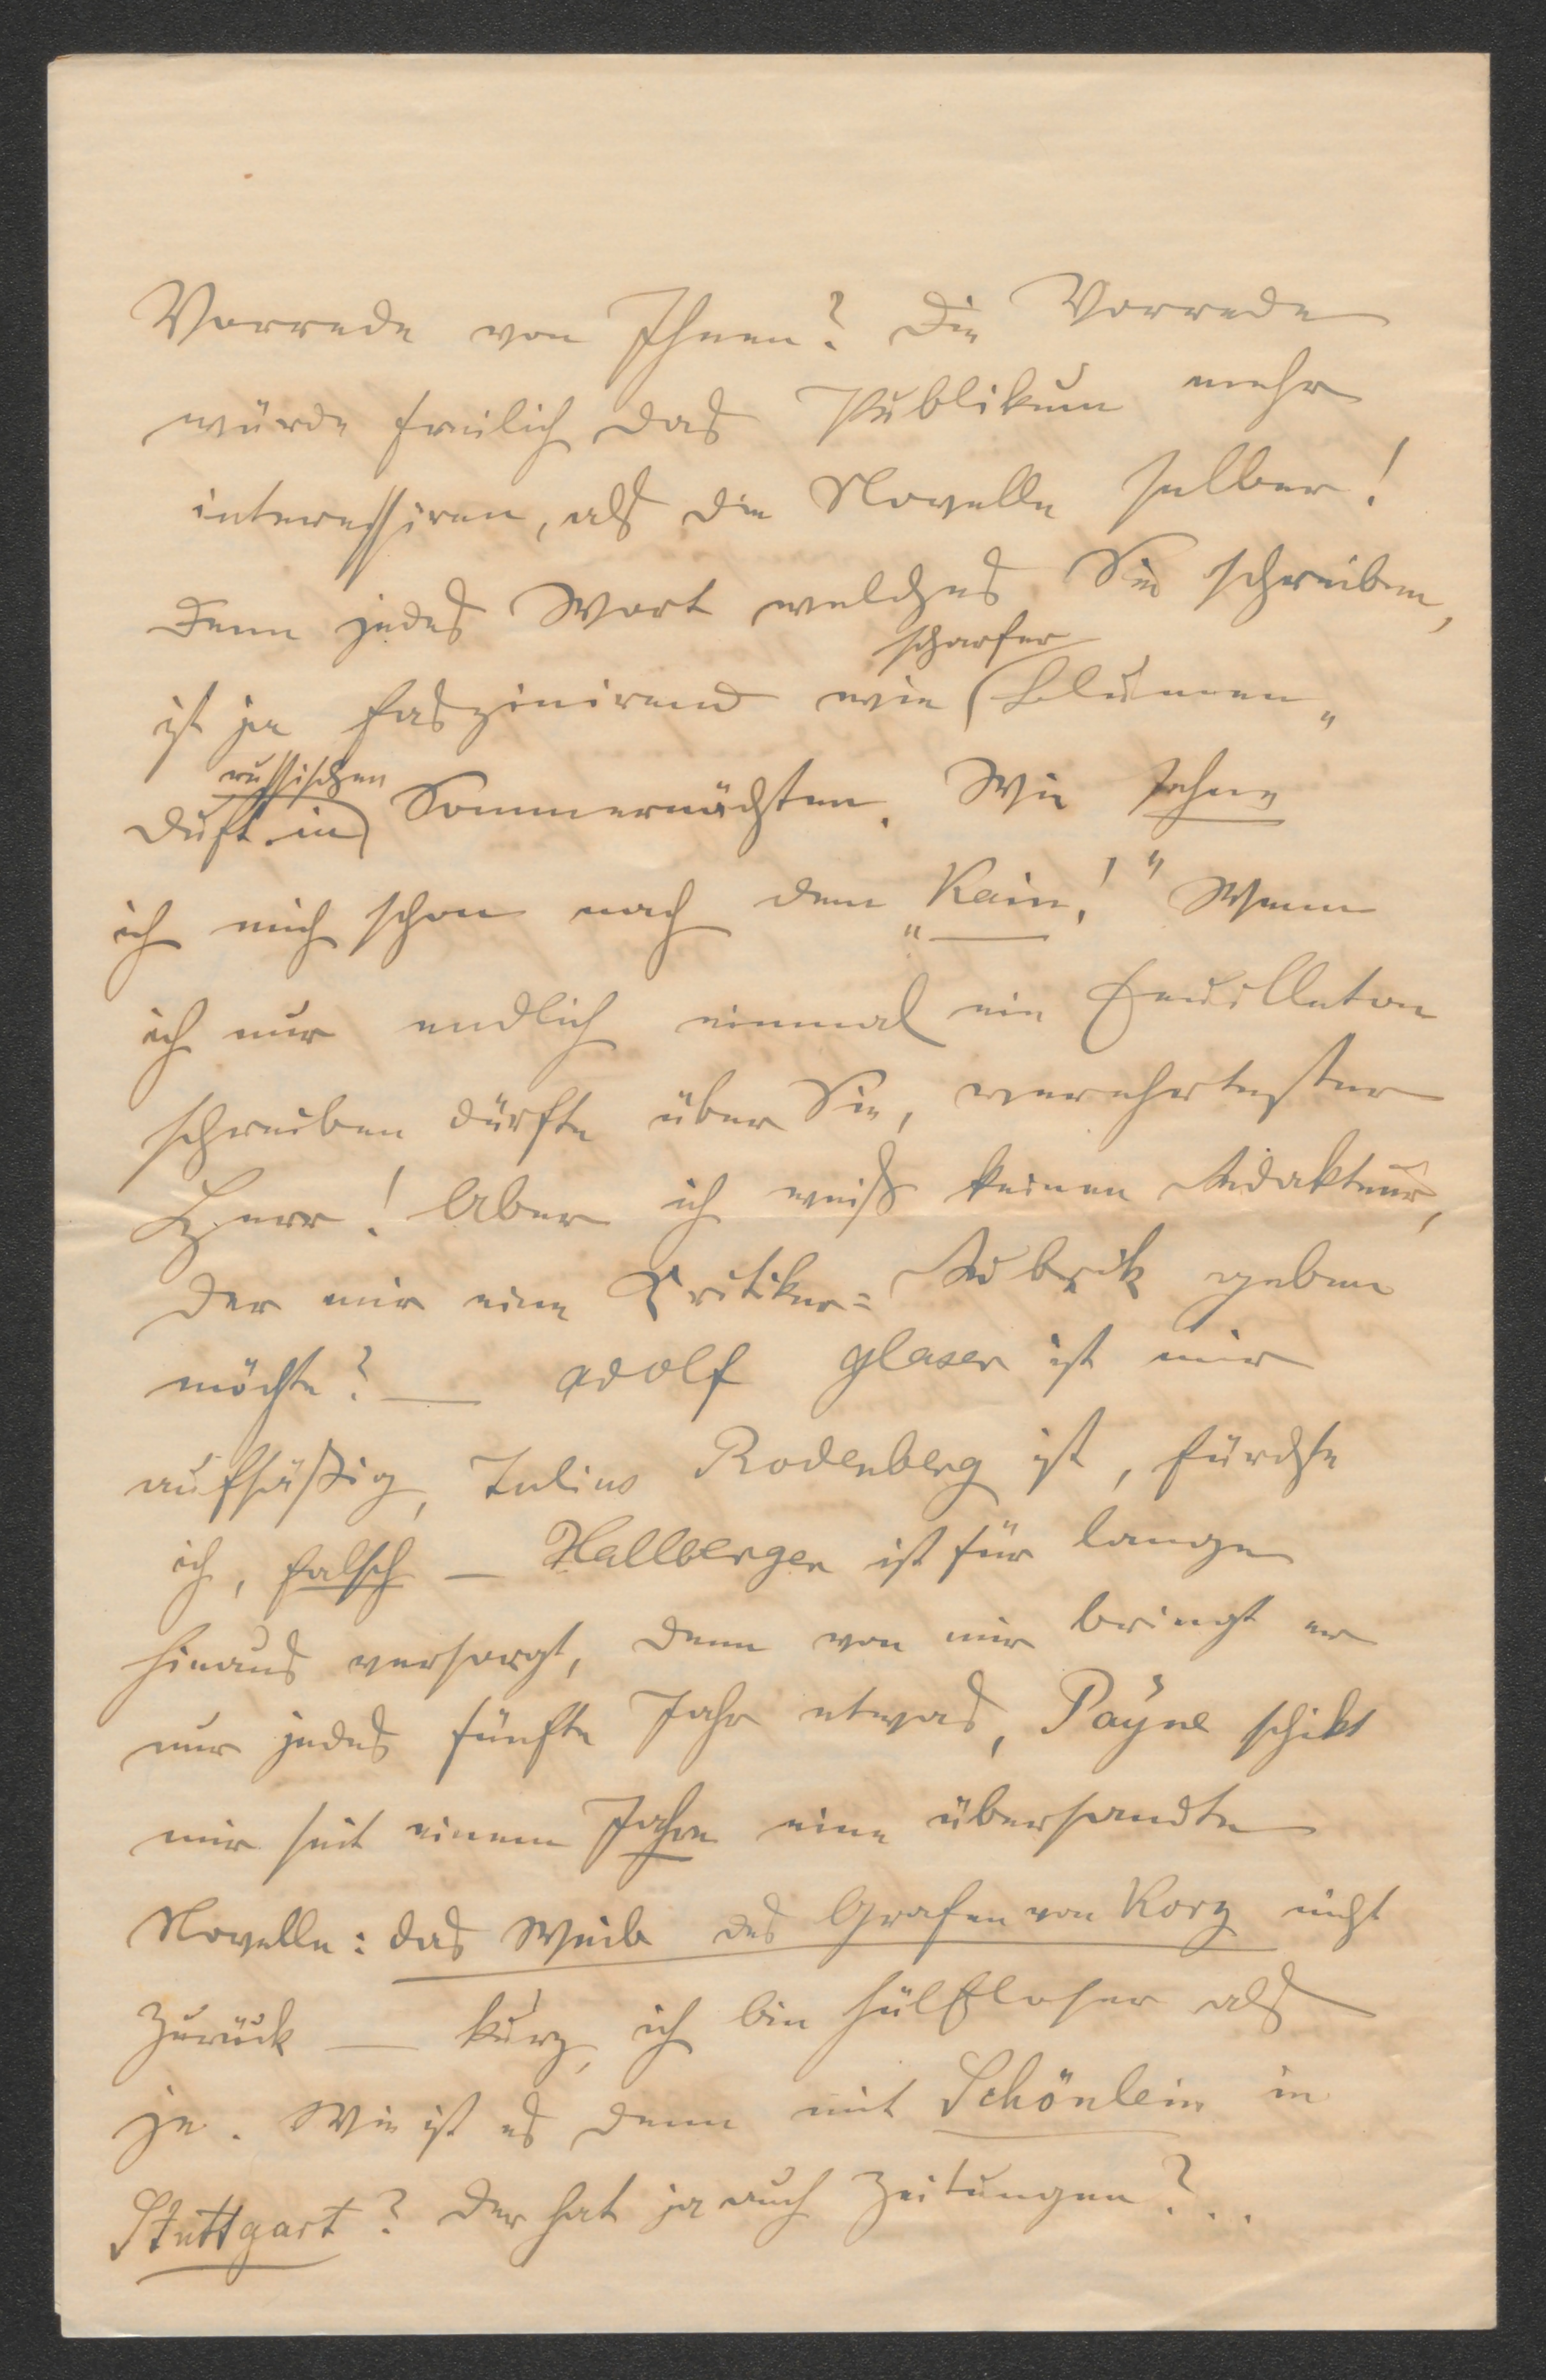 Vorrede von Ihnen? Die Vorrede
würde freilich das Publikum mehr
interessiren, als die Novelle selber!
Denn jedes Wort welches Sie schreiben,
scharfer
ist ja faszinirend wie (Blumen„
russischen
duft in) Sommernächten. Wie sehne
ich mich schon nach dem „Kain!“ Wenn
ich nur endlich einmal ein Feuilleton
schreiben dürfte über Sie, verehrtester
Herr! Aber ich weiß keinen Redakteur,
der mir eine Kritiker= Rubrik geben
möchte? — Adolf Glaser ist mir
aufsäßig, Julius Rodenberg ist, fürchte
ich, falsch — Hallberger ist für lange
hinaus versorgt, denn von mir bringt er
nur jedes fünfte Jahr etwas, Payne schikt
mir seit einem Jahre eine übersandte
Novelle: das Weib des Grafen von Korz nicht
zurück — kurz, ich bin hülfloser als
je. Wie ist es denn mit Schönlein in
Stuttgart? Der hat ja auch Zeitungen?..